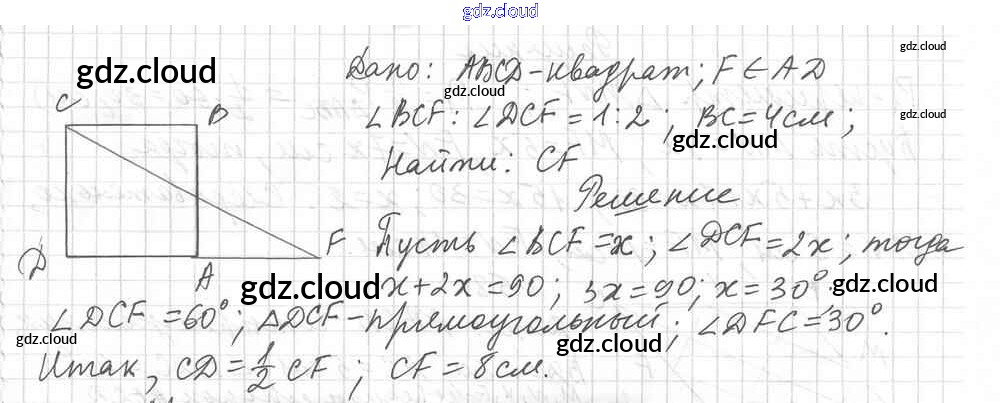 gdz.cloud
gdz.cloud
gdz.cloud
Дано: ABCD-квадрат; F ∈ AD
gdz.cloud
C
B
∠BCF : ∠DCF = 1:2 ; BC = 4см ;
gdz.cloud
gdz.cloud
Найти: CF
Решение
F
D
A
Пусть ∠BCF = x ; ∠DCF = 2x ; тогда
gdz.cloud
x + 2x = 90 ; 3x = 90 ; x = 30°
gdz.cloud
∠DCF = 60° ; △DCF - прямоугольный ; ∠DFC = 30°.
gdz.cloud
gdz.cloud
gdz.cloud
Итак, CD = 1/2 CF ; CF = 8см.